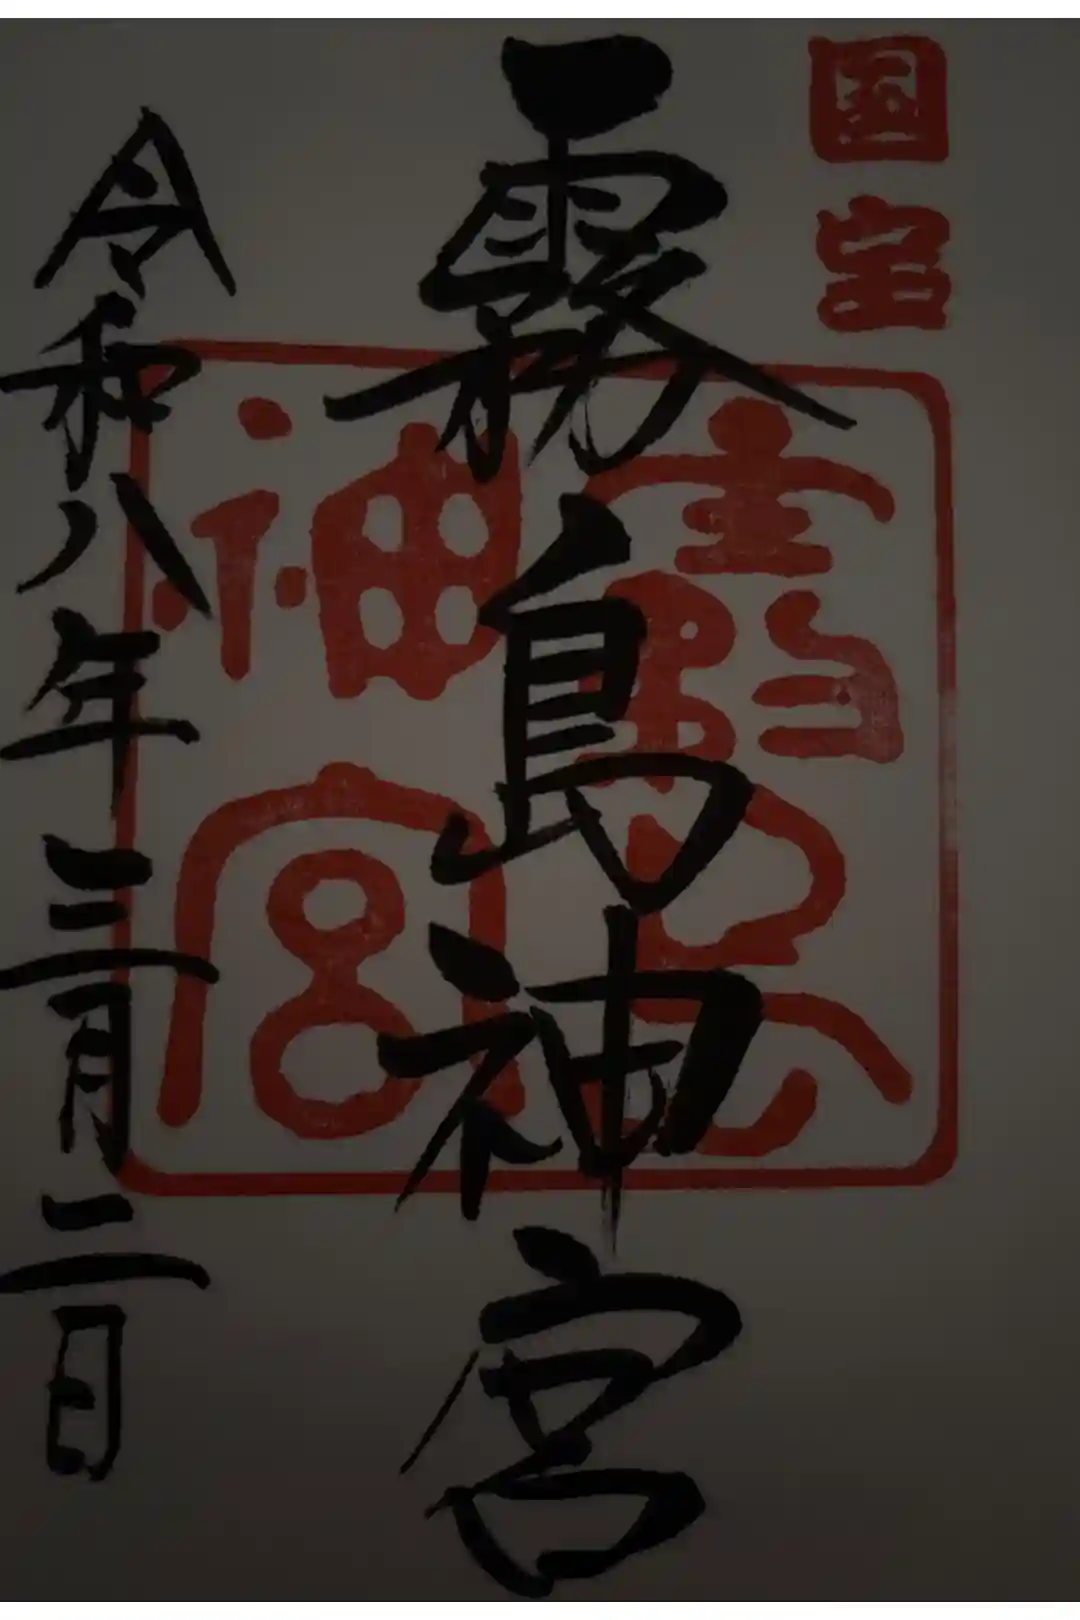 国宝
霧島神宮
霧島神宮
令和八年三月二日